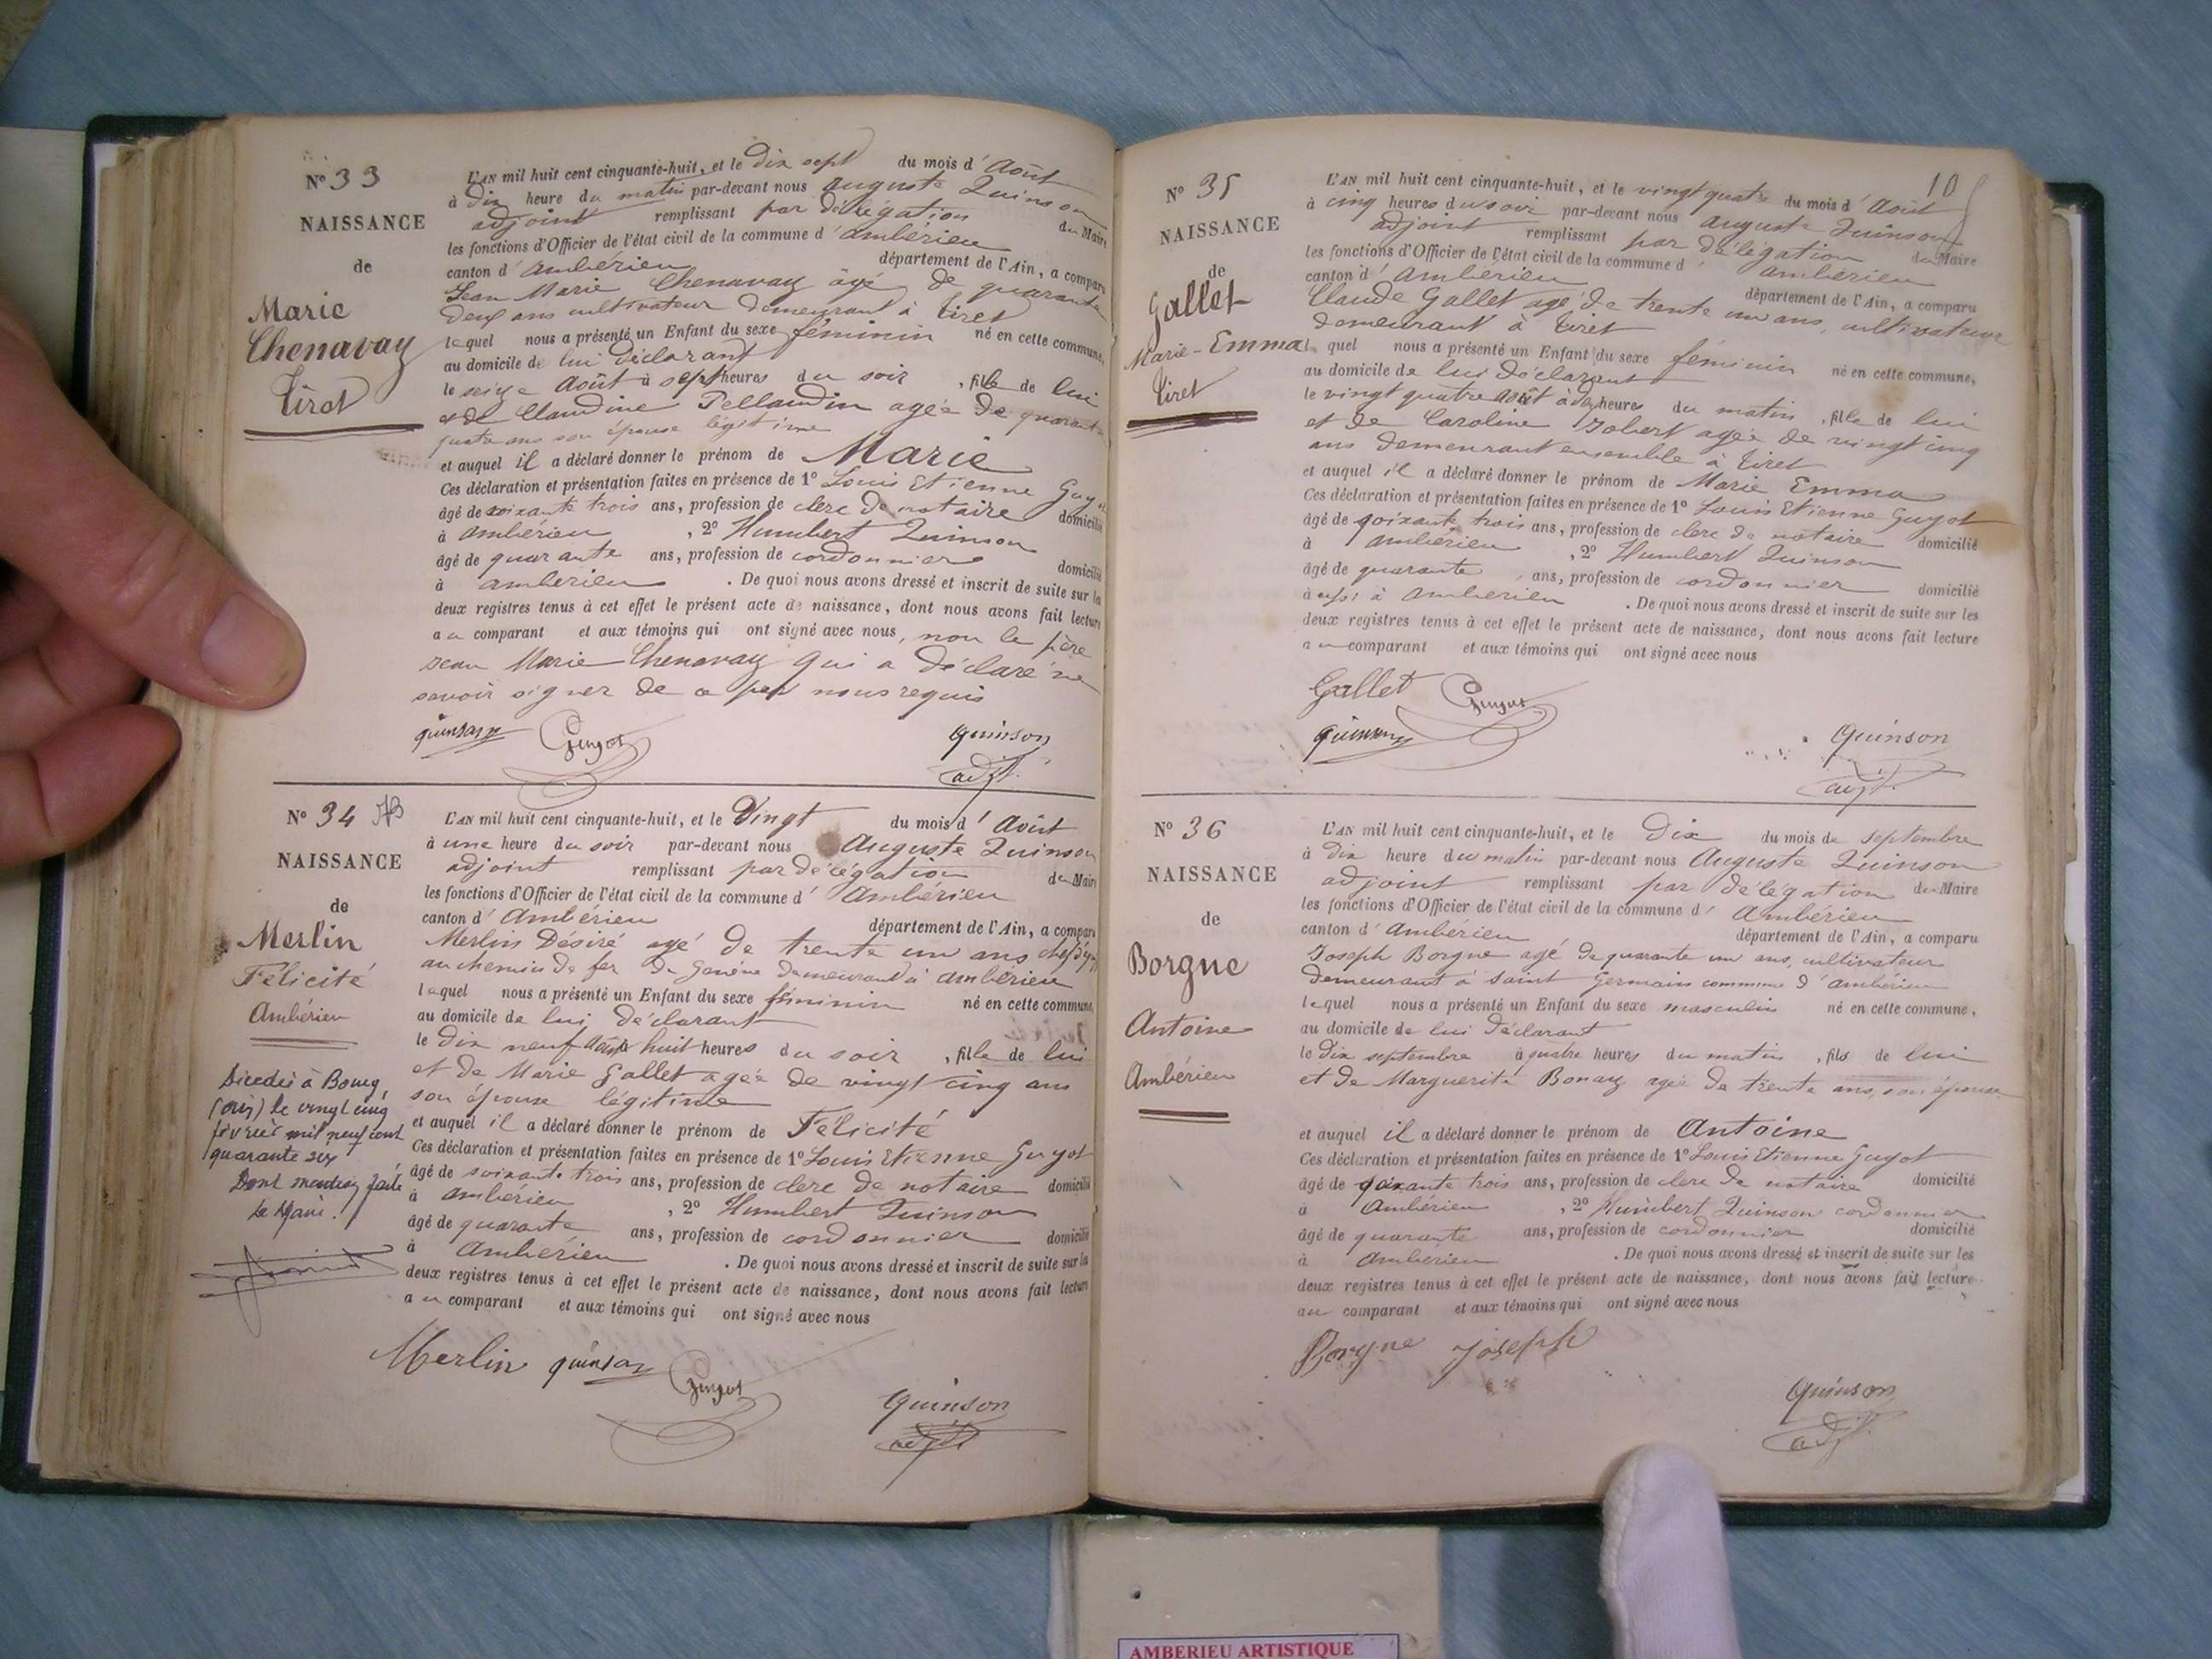 N° 33
NAISSANCE
de
Marie
Chenavay
Tiret
L'AN mil huit cent cinquante-huit, et le dix sept du mois d'Août
à dix heure du matin par-devant nous auguste Quinson
adjoint remplissant par délégation du Maire
les fonctions d'Officier de l'état civil de la commune d'ambérieu
canton d'ambérieu département de l'Ain, a comparu
Jean Marie Chenavay âgé de quarante
deux ans cultivateur demeurant à tiret
lequel nous a présenté un Enfant du sexe féminin né en cette commune,
au domicile de lui déclarant
le seize Août à sept heures du soir, fille de lui
et de Claudine Pellaudin agée de quarante
quatre ans son épouse légitime
et auquel il a déclaré donner le prénom de Marie
Ces déclaration et présentation faites en présence de 1° Louis Etienne Guyot
âgé de soixante trois ans, profession de clerc de notaire domicilié
à ambérieu, 2° Humbert Quinson
âgé de quarante ans, profession de cordonnier domicilié
à amberieu. De quoi nous avons dressé et inscrit de suite sur les
deux registres tenus à cet effet le présent acte de naissance, dont nous avons fait lecture
au comparant et aux témoins qui ont signé avec nous, non le père
Jean Marie Chenavay qui a déclaré ne
savoir signer de ce par nous requis
quinson Guyot quinson
adjt.
N° 34
NAISSANCE
de
Merlin
Félicité
Ambérieu
Décédée à Bourg
(Ain) le vingt cinq
février mil neuf cent
quarante six
Dont mention faite
Le Maire.
L'AN mil huit cent cinquante-huit, et le Vingt du mois d'Août
à une heure du soir par-devant nous Auguste Quinson
adjoint remplissant par délégation du Maire
les fonctions d'Officier de l'état civil de la commune d'Ambérieu
canton d'Ambérieu département de l'Ain, a comparu
Merlin Désiré agé de trente un ans
au chemin de fer de Genève demeurant à ambérieu
lequel nous a présenté un Enfant du sexe féminin né en cette commune,
au domicile de lui déclarant
le dix neuf Août à huit heures du soir, fille de lui
et de Marie Gallet agée de vingt cinq ans
son épouse légitime
et auquel il a déclaré donner le prénom de Félicité
Ces déclaration et présentation faites en présence de 1° Louis Etienne Guyot
âgé de soixante trois ans, profession de clerc de notaire domicilié
à ambérieu, 2° Humbert Quinson
âgé de quarante ans, profession de cordonnier domicilié
à Ambérieu. De quoi nous avons dressé et inscrit de suite sur les
deux registres tenus à cet effet le présent acte de naissance, dont nous avons fait lecture
au comparant et aux témoins qui ont signé avec nous
Merlin quinson Guyot quinson
adjt
10
N° 35
NAISSANCE
de
Gallet
Marie-Emma
Tiret
L'AN mil huit cent cinquante-huit, et le vingt quatre du mois d'Août
à cinq heures du soir par-devant nous auguste Quinson
adjoint remplissant par délégation du Maire
les fonctions d'Officier de l'état civil de la commune d'ambérieu
canton d'Ambérieu département de l'Ain, a comparu
Claude Gallet agé de trente un ans, cultivateur
demeurant à tiret
lequel nous a présenté un Enfant du sexe féminin né en cette commune,
au domicile de lui déclarant
le vingt quatre août à dix heures du matin, fille de lui
et de Caroline Jobert agée de vingt cinq
ans demeurant ensemble à tiret
et auquel il a déclaré donner le prénom de Marie Emma
Ces déclaration et présentation faites en présence de 1° Louis Etienne Guyot
âgé de soixante trois ans, profession de clerc de notaire domicilié
à ambérieu, 2° Humbert Quinson
âgé de quarante, ans, profession de cordonnier domicilié
aussi à amberieu. De quoi nous avons dressé et inscrit de suite sur les
deux registres tenus à cet effet le présent acte de naissance, dont nous avons fait lecture
au comparant et aux témoins qui ont signé avec nous
Gallet Guyot
quinson quinson
adjt.
N° 36
NAISSANCE
de
Borgne
Antoine
Ambérieu
L'AN mil huit cent cinquante-huit, et le Dix du mois de septembre
à dix heure du matin par-devant nous Auguste Quinson
adjoint remplissant par délégation du Maire
les fonctions d'Officier de l'état civil de la commune d'Ambérieu
canton d'Ambérieu département de l'Ain, a comparu
Joseph Borgne agé de quarante un ans, cultivateur
demeurant à saint Germain commune d'ambérieu
lequel nous a présenté un Enfant du sexe masculin né en cette commune,
au domicile de lui déclarant
le dix septembre à quatre heures du matin, fils de lui
et de Marguerite Bonaz agée de trente ans, son épouse
et auquel il a déclaré donner le prénom de Antoine
Ces déclaration et présentation faites en présence de 1° Louis Etienne Guyot
âgé de soixante trois ans, profession de clerc de notaire domicilié
à Ambérieu, 2° Humbert Quinson cordonnier
âgé de quarante ans, profession de cordonnier domicilié
à Ambérieu. De quoi nous avons dressé et inscrit de suite sur les
deux registres tenus à cet effet le présent acte de naissance, dont nous avons fait lecture
au comparant et aux témoins qui ont signé avec nous
Borgne Joseph
quinson
adjt.
AMBERIEU ARTISTIQUE